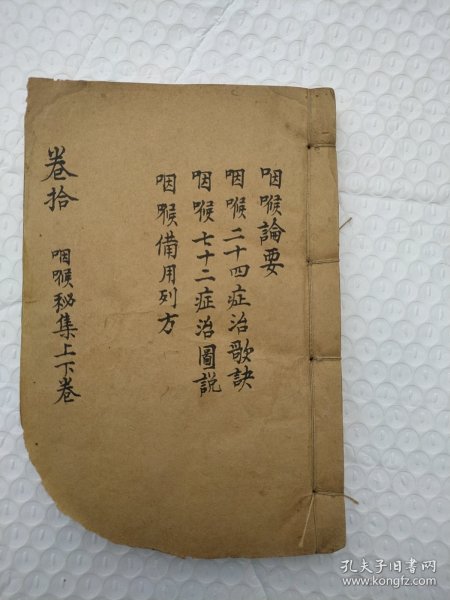 咽喉論要
咽喉二十四症治歌訣
咽喉七十二症治圖説
咽喉備用列方
卷拾
咽喉秘集上下卷
孔夫子旧书网
www.kongfz.com